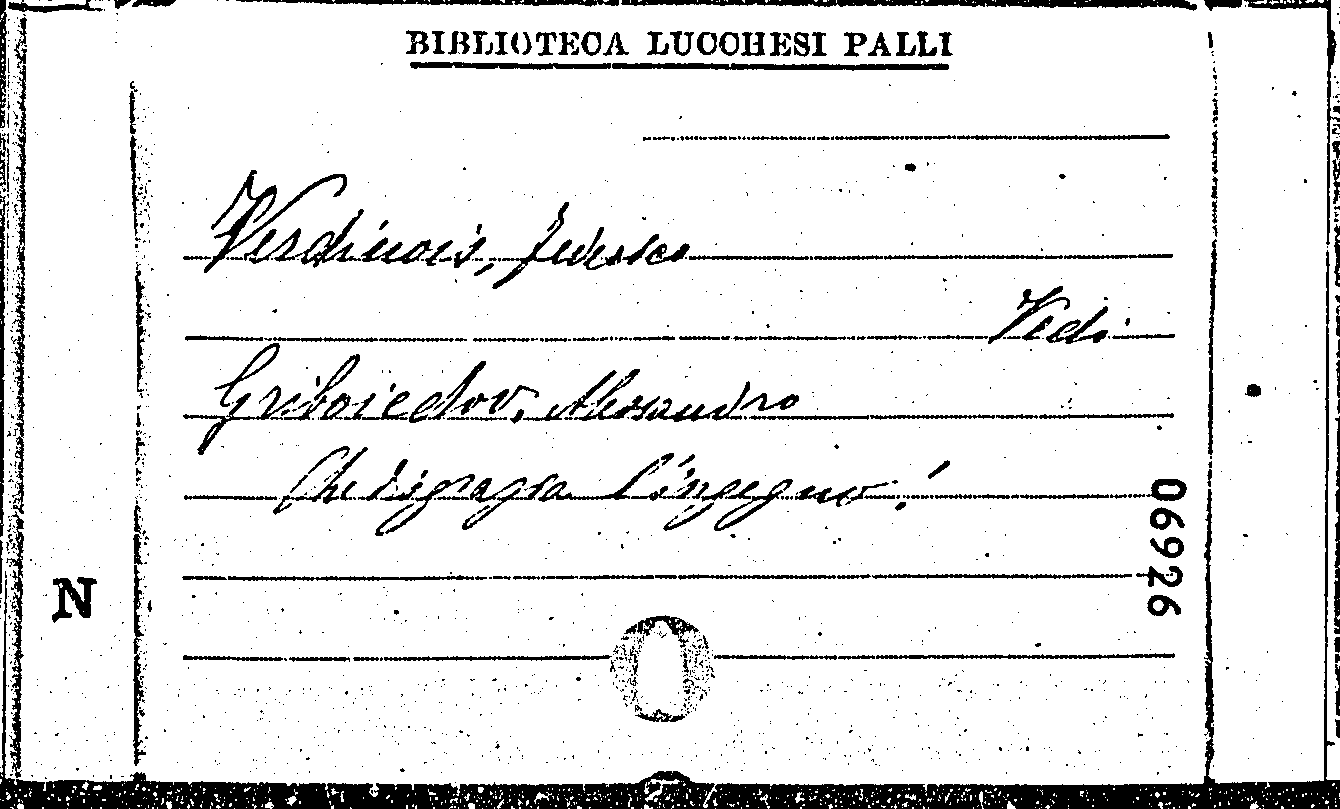 BIBLIOTECA LUCCHESI PALLI
Verdinois, Federico
Vedi
Griboiedov, Alessandro
Che disgrazia l'ingegno!
06926
N